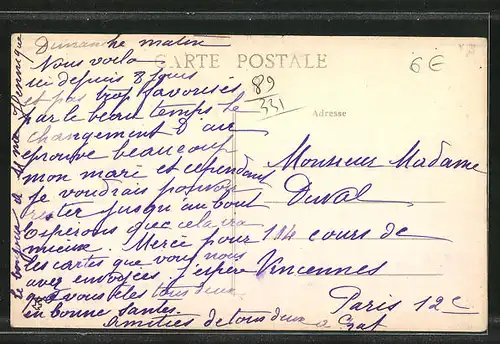 Dimanche matin
CARTE POSTALE
Nous voila
ici depuis 8 jours
et pas trop favorisés
par le beau temps le
changement d'air
eprouve beaucoup
mon mare et cependant
je voudrais pouvoir
rester jusqu'au bout
Esperons que cela va
mieux. Merci pour
les cartes que vous nous
avez envoyées. J'espère
que vous êtes tous deux
en bonne santée.
Amitiés de tous deux a
le bonjour a Mme
89
331
6€
Adresse
Monsieur Madame
Duval
114 cours de
Vincennes
Paris 12e